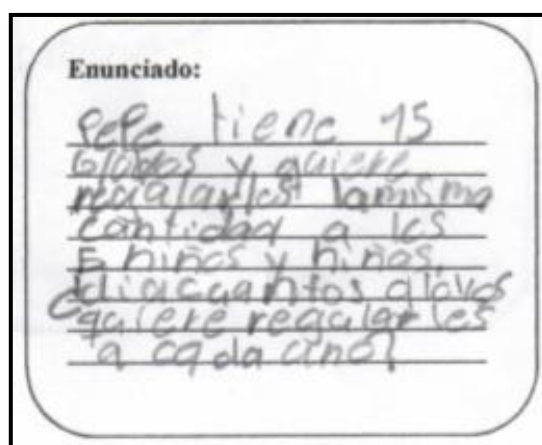 Enunciado:
Pepe tiene 15
Globos y quiere
regalarles la misma
cantidad a los
5 niños y niñas,
cuantos glovos
quiere regalarles
a cada uno?